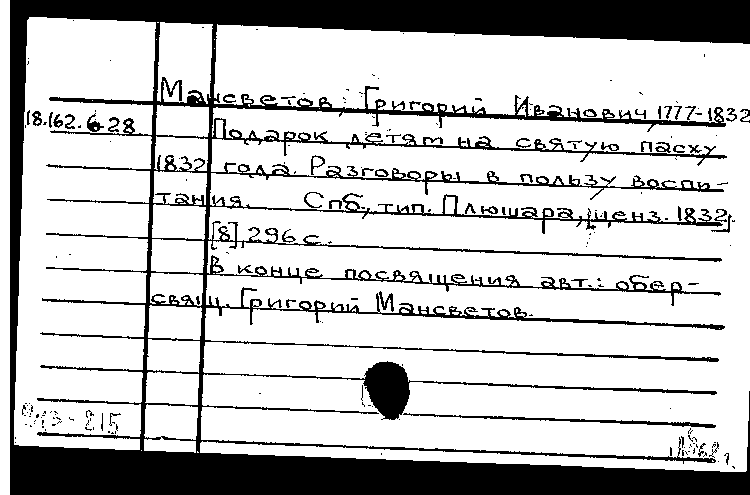 Мансветов, Григорий Иванович, 1777-1832
18.162.6-28 Подарок детям на святую пасху
1832 года. Разговоры в пользу воспи-
тания. Спб., тип. Плюшара, [ценз. 1832].
[8], 296 с.
В конце посвящения авт.: обер-
свящ. Григорий Мансветов.